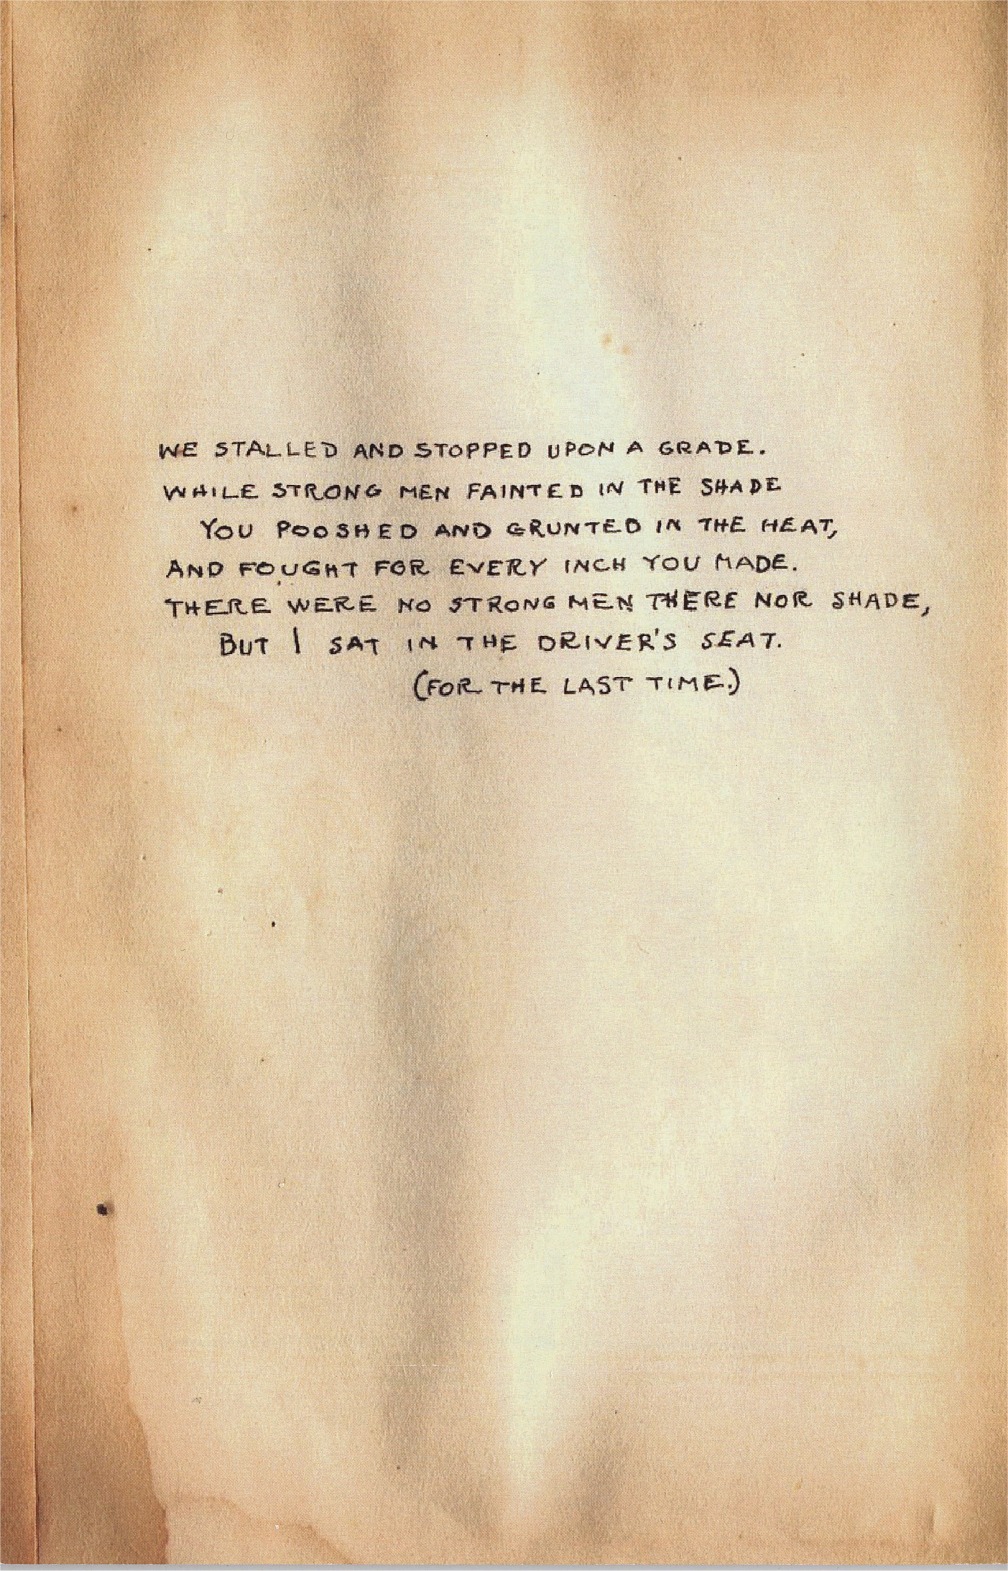 WE STALLED AND STOPPED UPON A GRADE.
WHILE STRONG MEN FAINTED IN THE SHADE
YOU POOSHED AND GRUNTED IN THE HEAT,
AND FOUGHT FOR EVERY INCH YOU MADE.
THERE WERE NO STRONG MEN THERE NOR SHADE,
BUT I SAT IN THE DRIVER'S SEAT.
(FOR THE LAST TIME.)